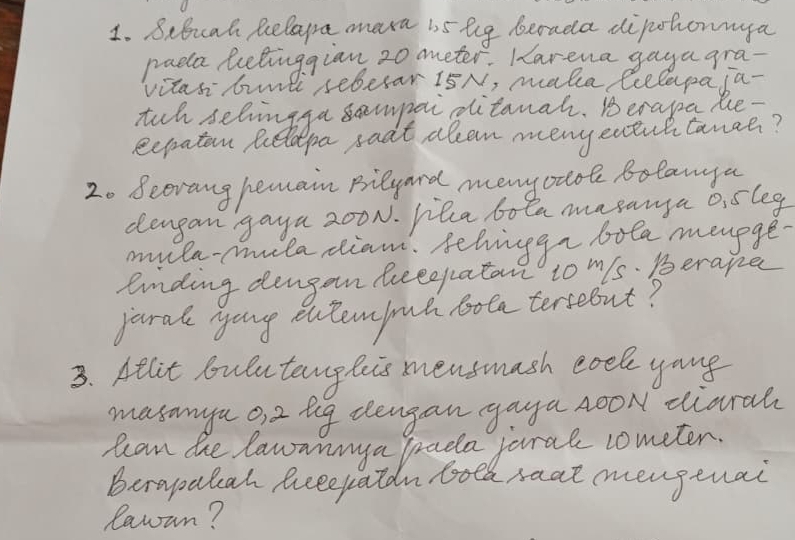 1. Sebuah kelapa masa 1,5 kg berada dipohonnya
pada ketinggian 20 meter. Karena gaya gra-
vitasi bumi sebesar 15N, maka kelapa ja-
tuh sehingga sampai ditanah. Berapa ke-
cepatan kelapa saat akan menyentuh tanah?
2. Seorang pemain Bilyard menyodok bolanya
dengan gaya 200N. jika bola masanya 0,5 kg
mula-mula diam. sehingga bola mengge-
linding dengan kecepatan 10 m/s. Berapa
jarak yang ditempuh bola tersebut?
3. Atlit bulutangkis mensmash cock yang
masanya 0,2 kg dengan gaya 400N diarah
kan ke lawannya pada jarak 10 meter.
Berapakah kecepatan bola saat mengenai
lawan?